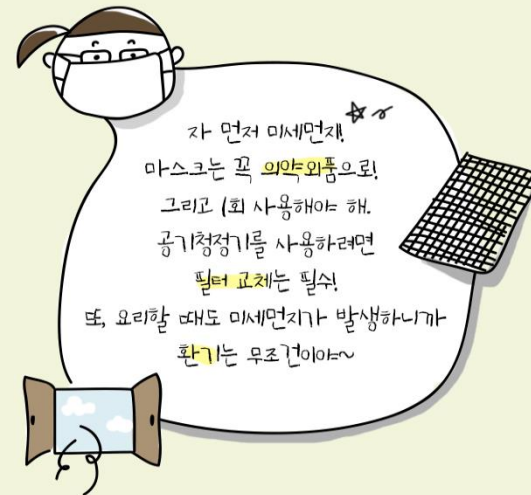 자 먼저 미세먼지!
마스크는 꼭 의약외품으로!
그리고 1회 사용해야 해.
공기청정기를 사용하려면
필터 교체는 필수!
또, 요리할 때도 미세먼지가 발생하니까
환기는 무조건이야~